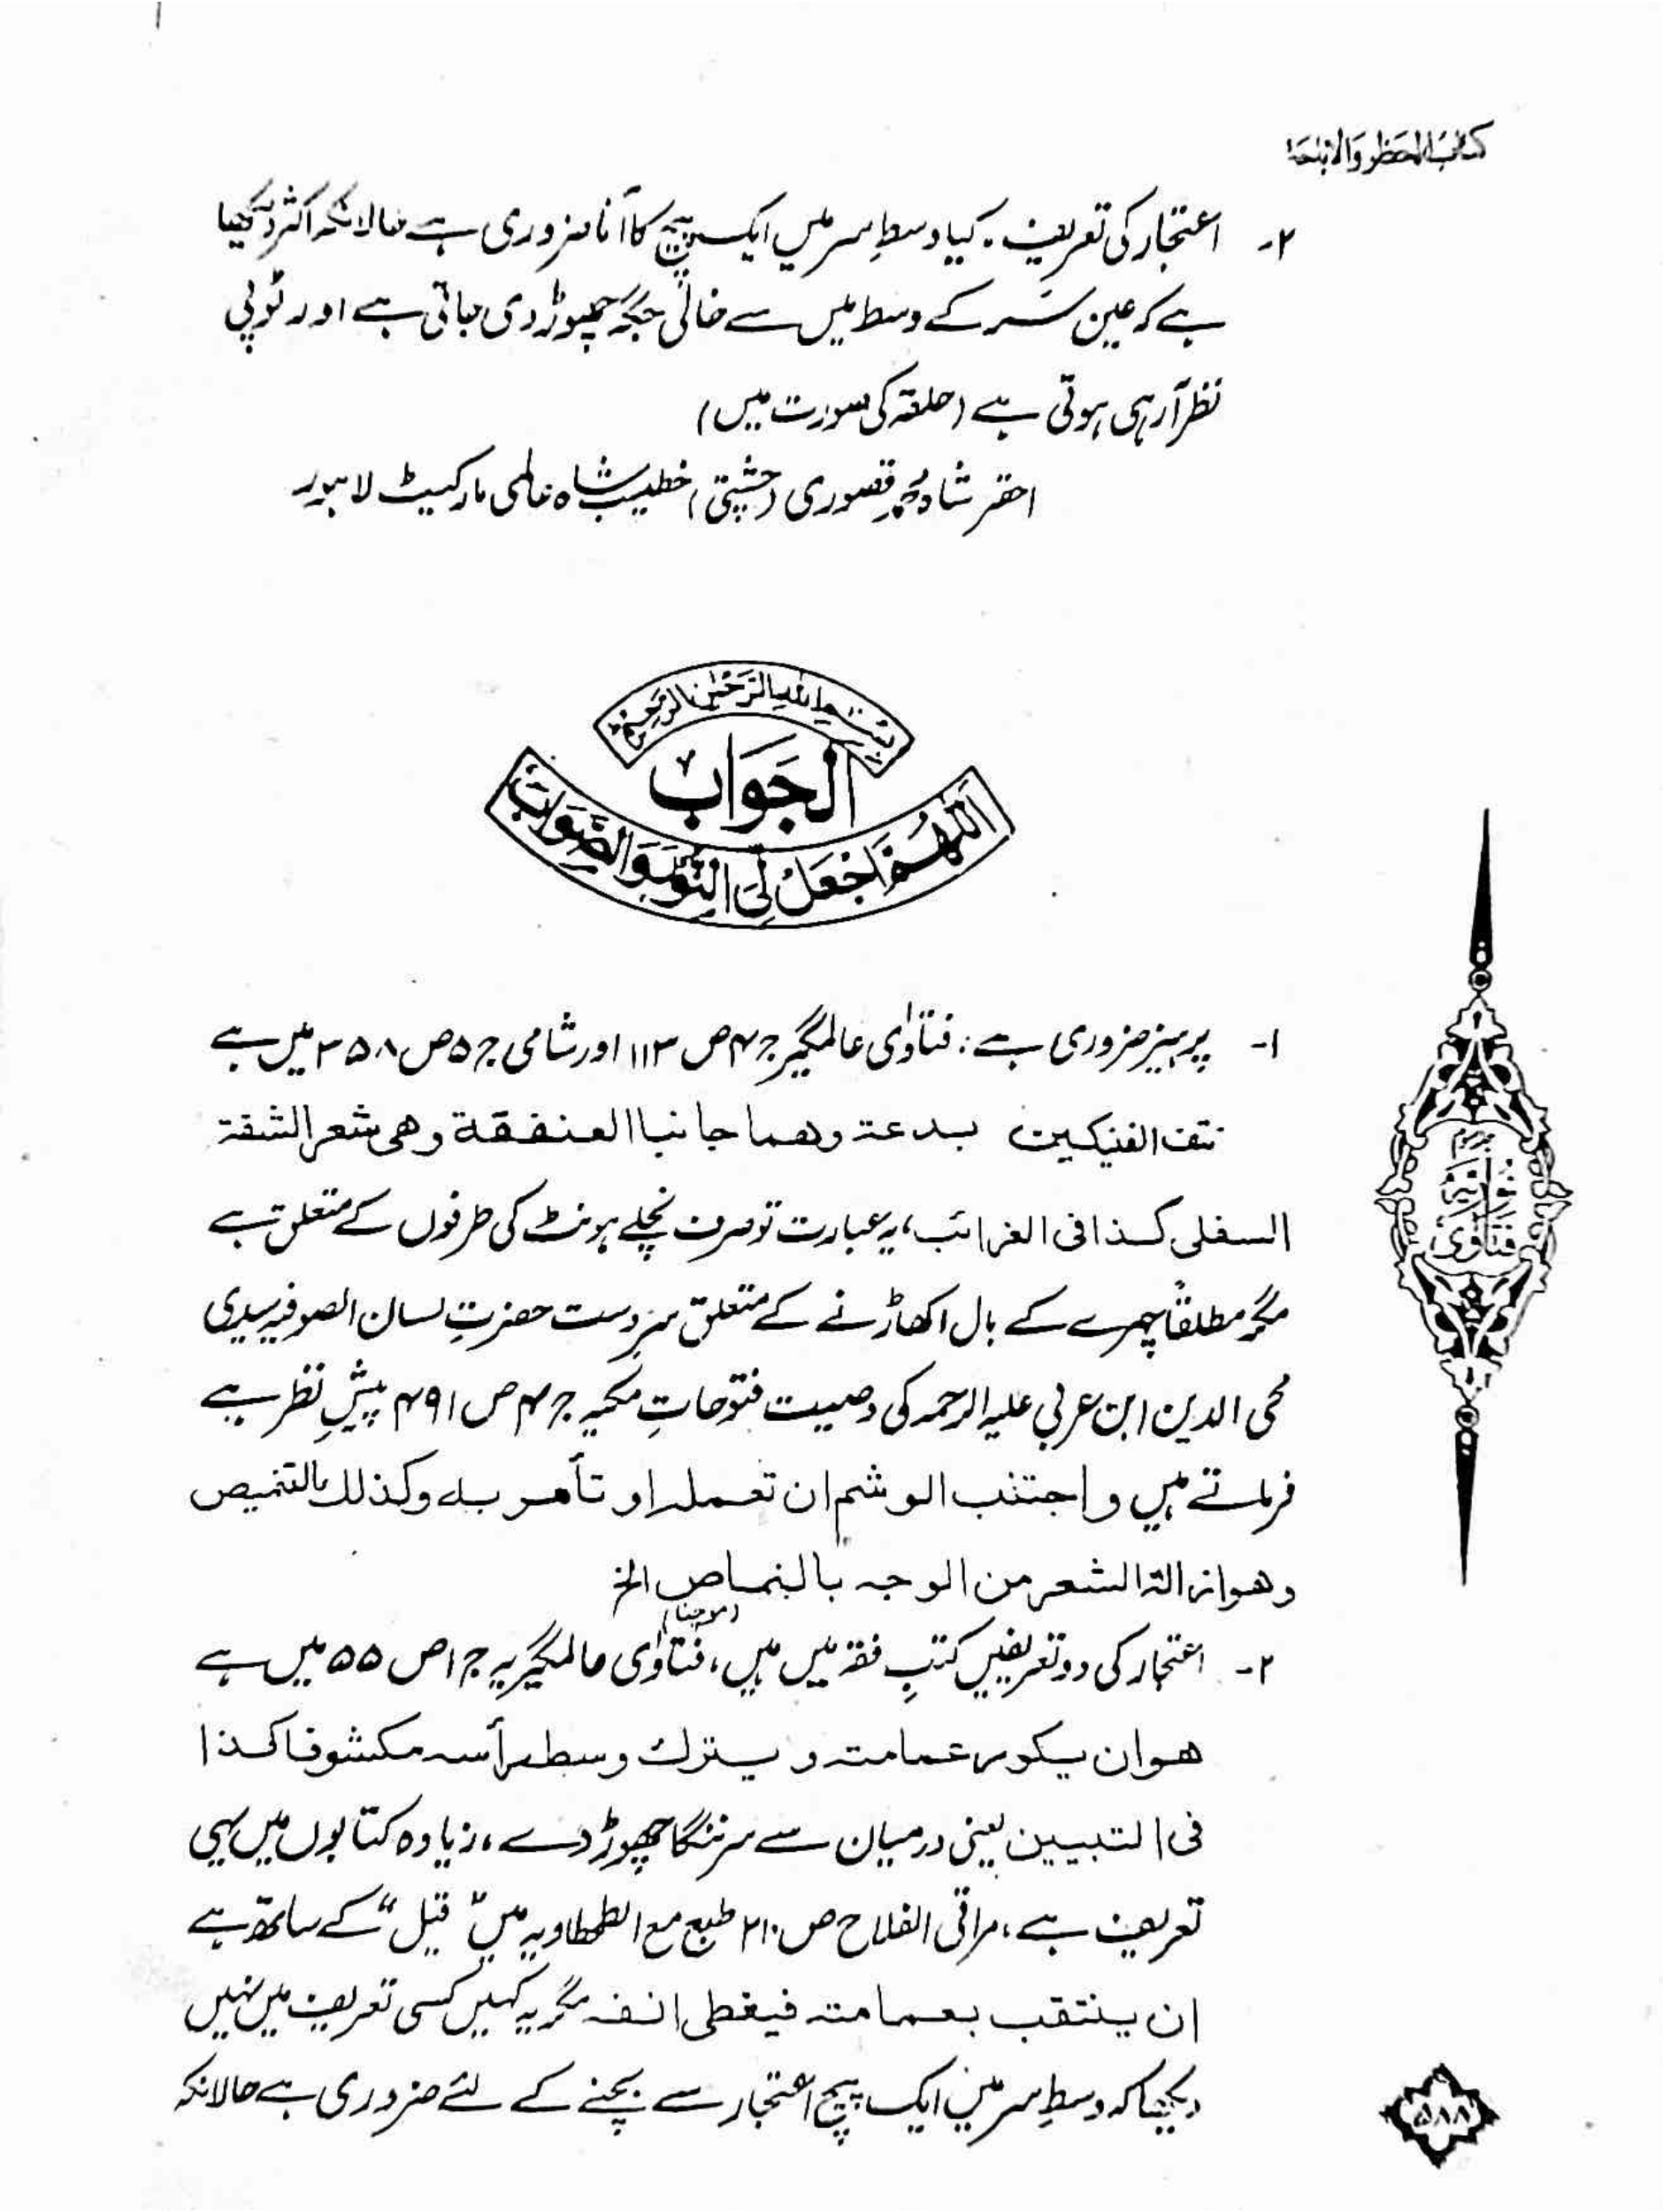 کتاب الحظر والاباحة
۲- اعتجار کی تعریف۔ کیا وسطِ سر میں ایک پیچ کا آنا ضروری ہے حالانکہ اکثر دیکھا
ہے کہ عین سَر کے وسط میں سے خالی جگہ چھوڑ دی جاتی ہے اور ٹوپی
نظر آرہی ہوتی ہے (حلقہ کی صورت میں)
احقر شاہ محمد قصوری (چشتی) خطیب شاہ عالمی مارکیٹ لاہور
بِسْمِ اللهِ الرَّحْمٰنِ الرَّحِیْمِ
الجَوَاب
اَللّٰهُمَّ اجْعَلْ لِّیَ النُّوْرَ وَالصَّوَابَ
۱- پرہیز ضروری ہے: فتاوٰی عالمگیر ج ۴ ص ۱۱۳ اور شامی ج ۵ ص ۳۵۸ میں ہے
نتف الفنیکین بدعة وھما جانبا العنفقة وھی شعر الشفة
السفلی کذا فی الغرائب، یہ عبارت تو صرف نچلے ہونٹ کی طرفوں کے متعلق ہے
مگر مطلقاً چہرے کے بال اکھاڑنے کے متعلق سرِدست حضرتِ لسان الصوفیہ سیدی
محی الدین ابن عربی علیہ الرحمہ کی وصیت فتوحاتِ مکیہ ج ۴ ص ۴۹۱ پیشِ نظر ہے
فرماتے ہیں واجتنب الوشم ان تعملہ او تأمر بہ وکذلك بالتنمیص
وھو ازالة الشعر من الوجہ بالنماص الخ
۲- اعتجار کی دو تعریفیں کتبِ فقہ میں ہیں، فتاوٰی عالمگیریہ ج ۱ ص ۵۵ میں ہے
ھو ان یکور عمامتہ و یترك وسط رأسہ مکشوفا کذا
فی التبیین یعنی درمیان سے سر ننگا چھوڑ دے، زیادہ کتابوں میں یہی
تعریف ہے، مراقی الفلاح ص ۲۱۰ طبع مع الطحطاویہ میں "قیل" کے ساتھ ہے
ان ینتقب بعمامتہ فیغطی انفہ مگر یہ کہیں کسی تعریف میں نہیں
دیکھا کہ وسطِ سر میں ایک پیچ اعتجار سے بچنے کے لئے ضروری ہے حالانکہ
فتاوٰی نوریہ
۵۸۸